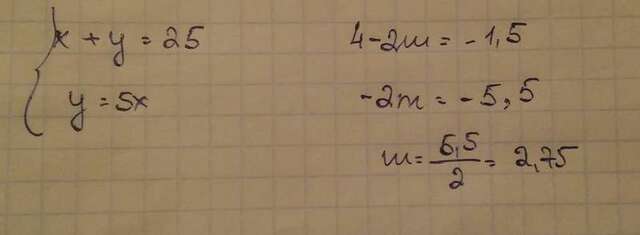 x + y = 25
y = 5x
4-2m = -1,5
-2m = -5,5
m = 5,5/2 = 2,75